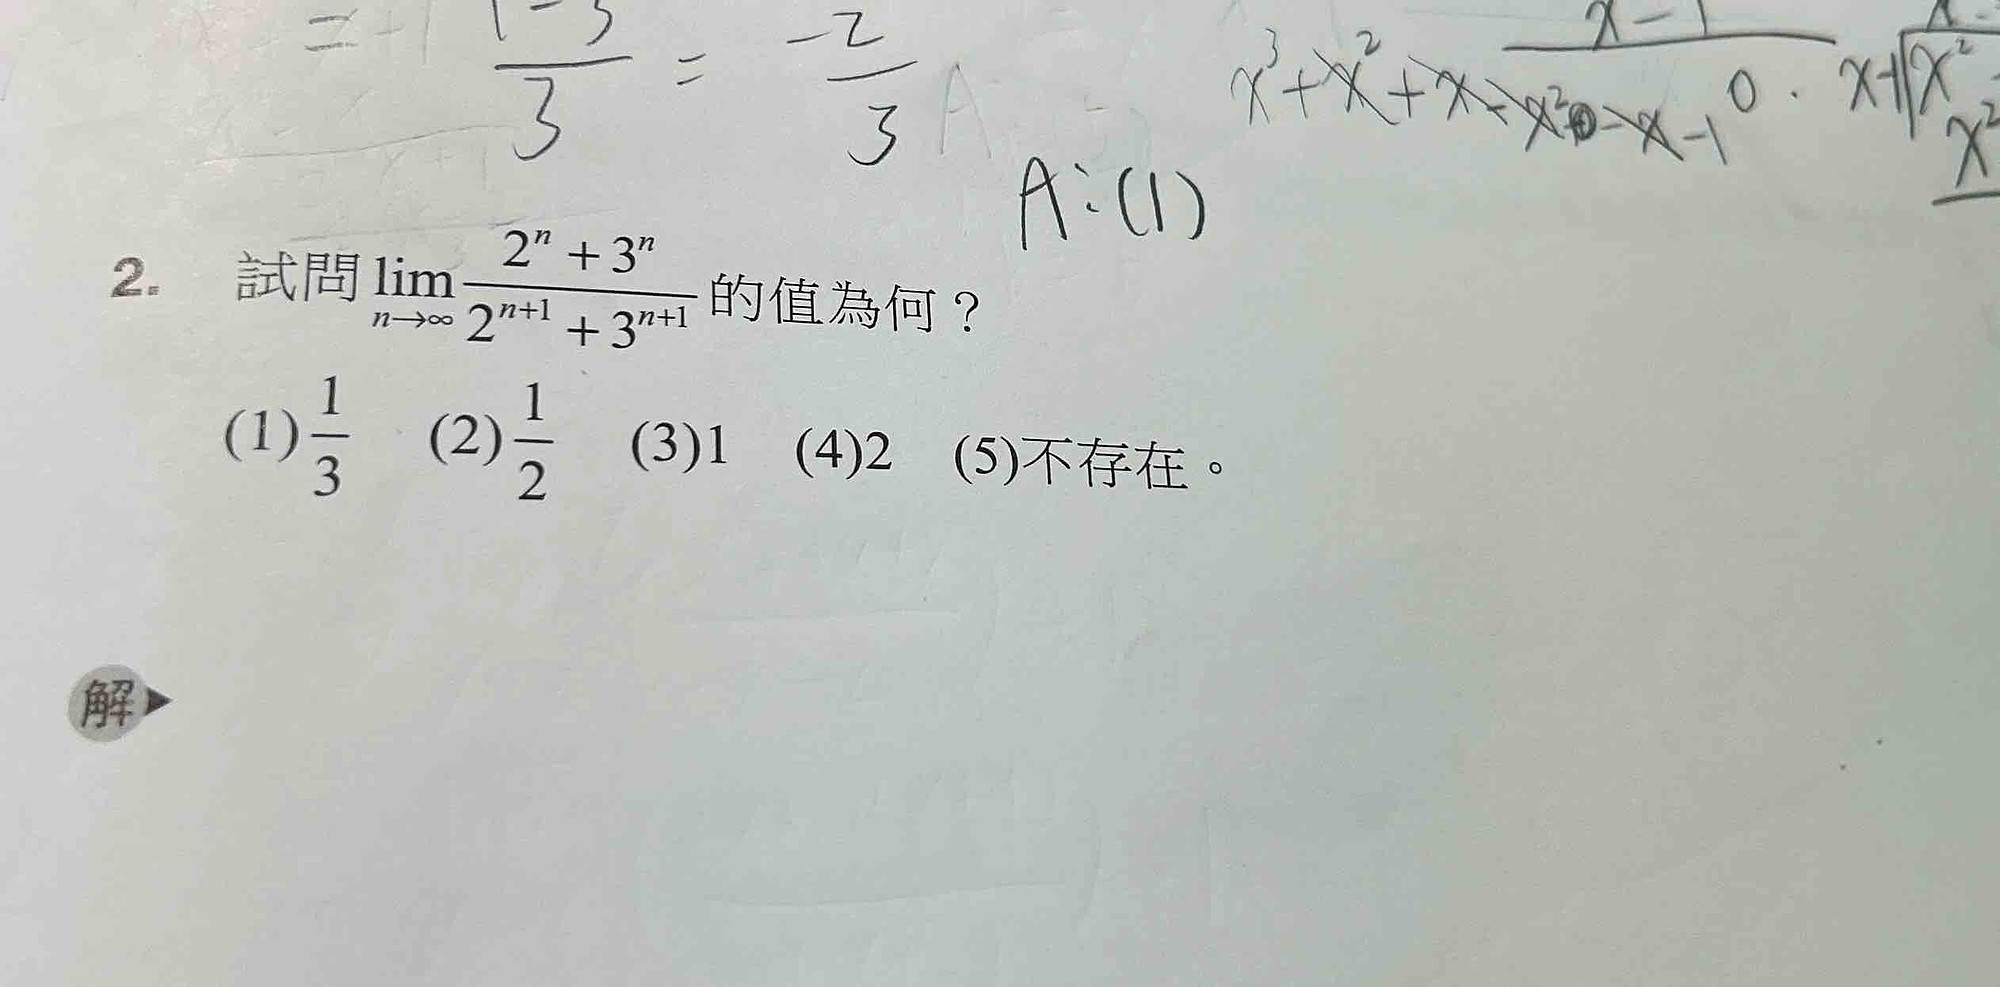 = -1 1-3/3 = -2/3 A
x-1
x³+x²+x-x²-x-1 0. x-1 x²
x²
A:(1)
2. 試問 lim n→∞ (2ⁿ + 3ⁿ)/(2ⁿ⁺¹ + 3ⁿ⁺¹) 的值為何？
(1) 1/3 (2) 1/2 (3)1 (4)2 (5)不存在。
解